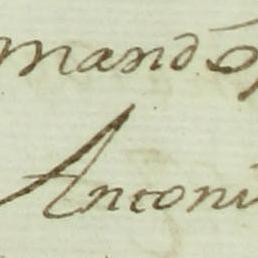 mandó
Antoni